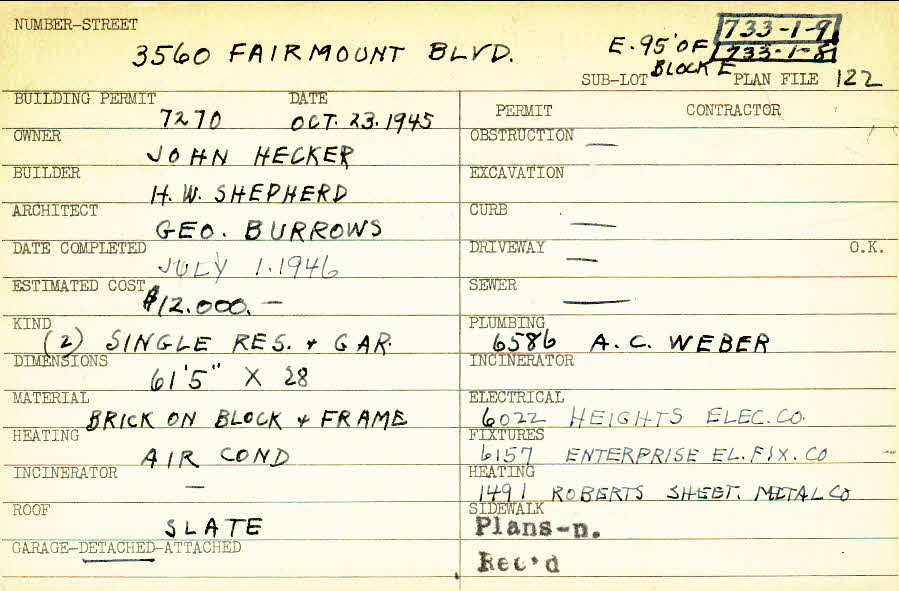 NUMBER-STREET
3560 FAIRMOUNT BLVD.
E. 95' OF
BLOCK E
733-1-9
733-1-8
SUB-LOT PLAN FILE 122
BUILDING PERMIT DATE
7270 OCT. 23. 1945
OWNER
JOHN HECKER
BUILDER
H. W. SHEPHERD
ARCHITECT
GEO. BURROWS
DATE COMPLETED
JULY 1. 1946
ESTIMATED COST
$12.000. —
KIND
(2) SINGLE RES. & GAR.
DIMENSIONS
61'5" X 28
MATERIAL
BRICK ON BLOCK & FRAME
HEATING
AIR COND
INCINERATOR
—
ROOF
SLATE
GARAGE-DETACHED-ATTACHED
PERMIT CONTRACTOR
OBSTRUCTION —
EXCAVATION
CURB —
DRIVEWAY — O.K.
SEWER —
PLUMBING
6586 A. C. WEBER
INCINERATOR
ELECTRICAL
6022 HEIGHTS ELEC. CO.
FIXTURES
6157 ENTERPRISE EL. FIX. CO
HEATING
1491 ROBERTS SHEET. METAL CO
SIDEWALK
Plans-n.
Rec'd